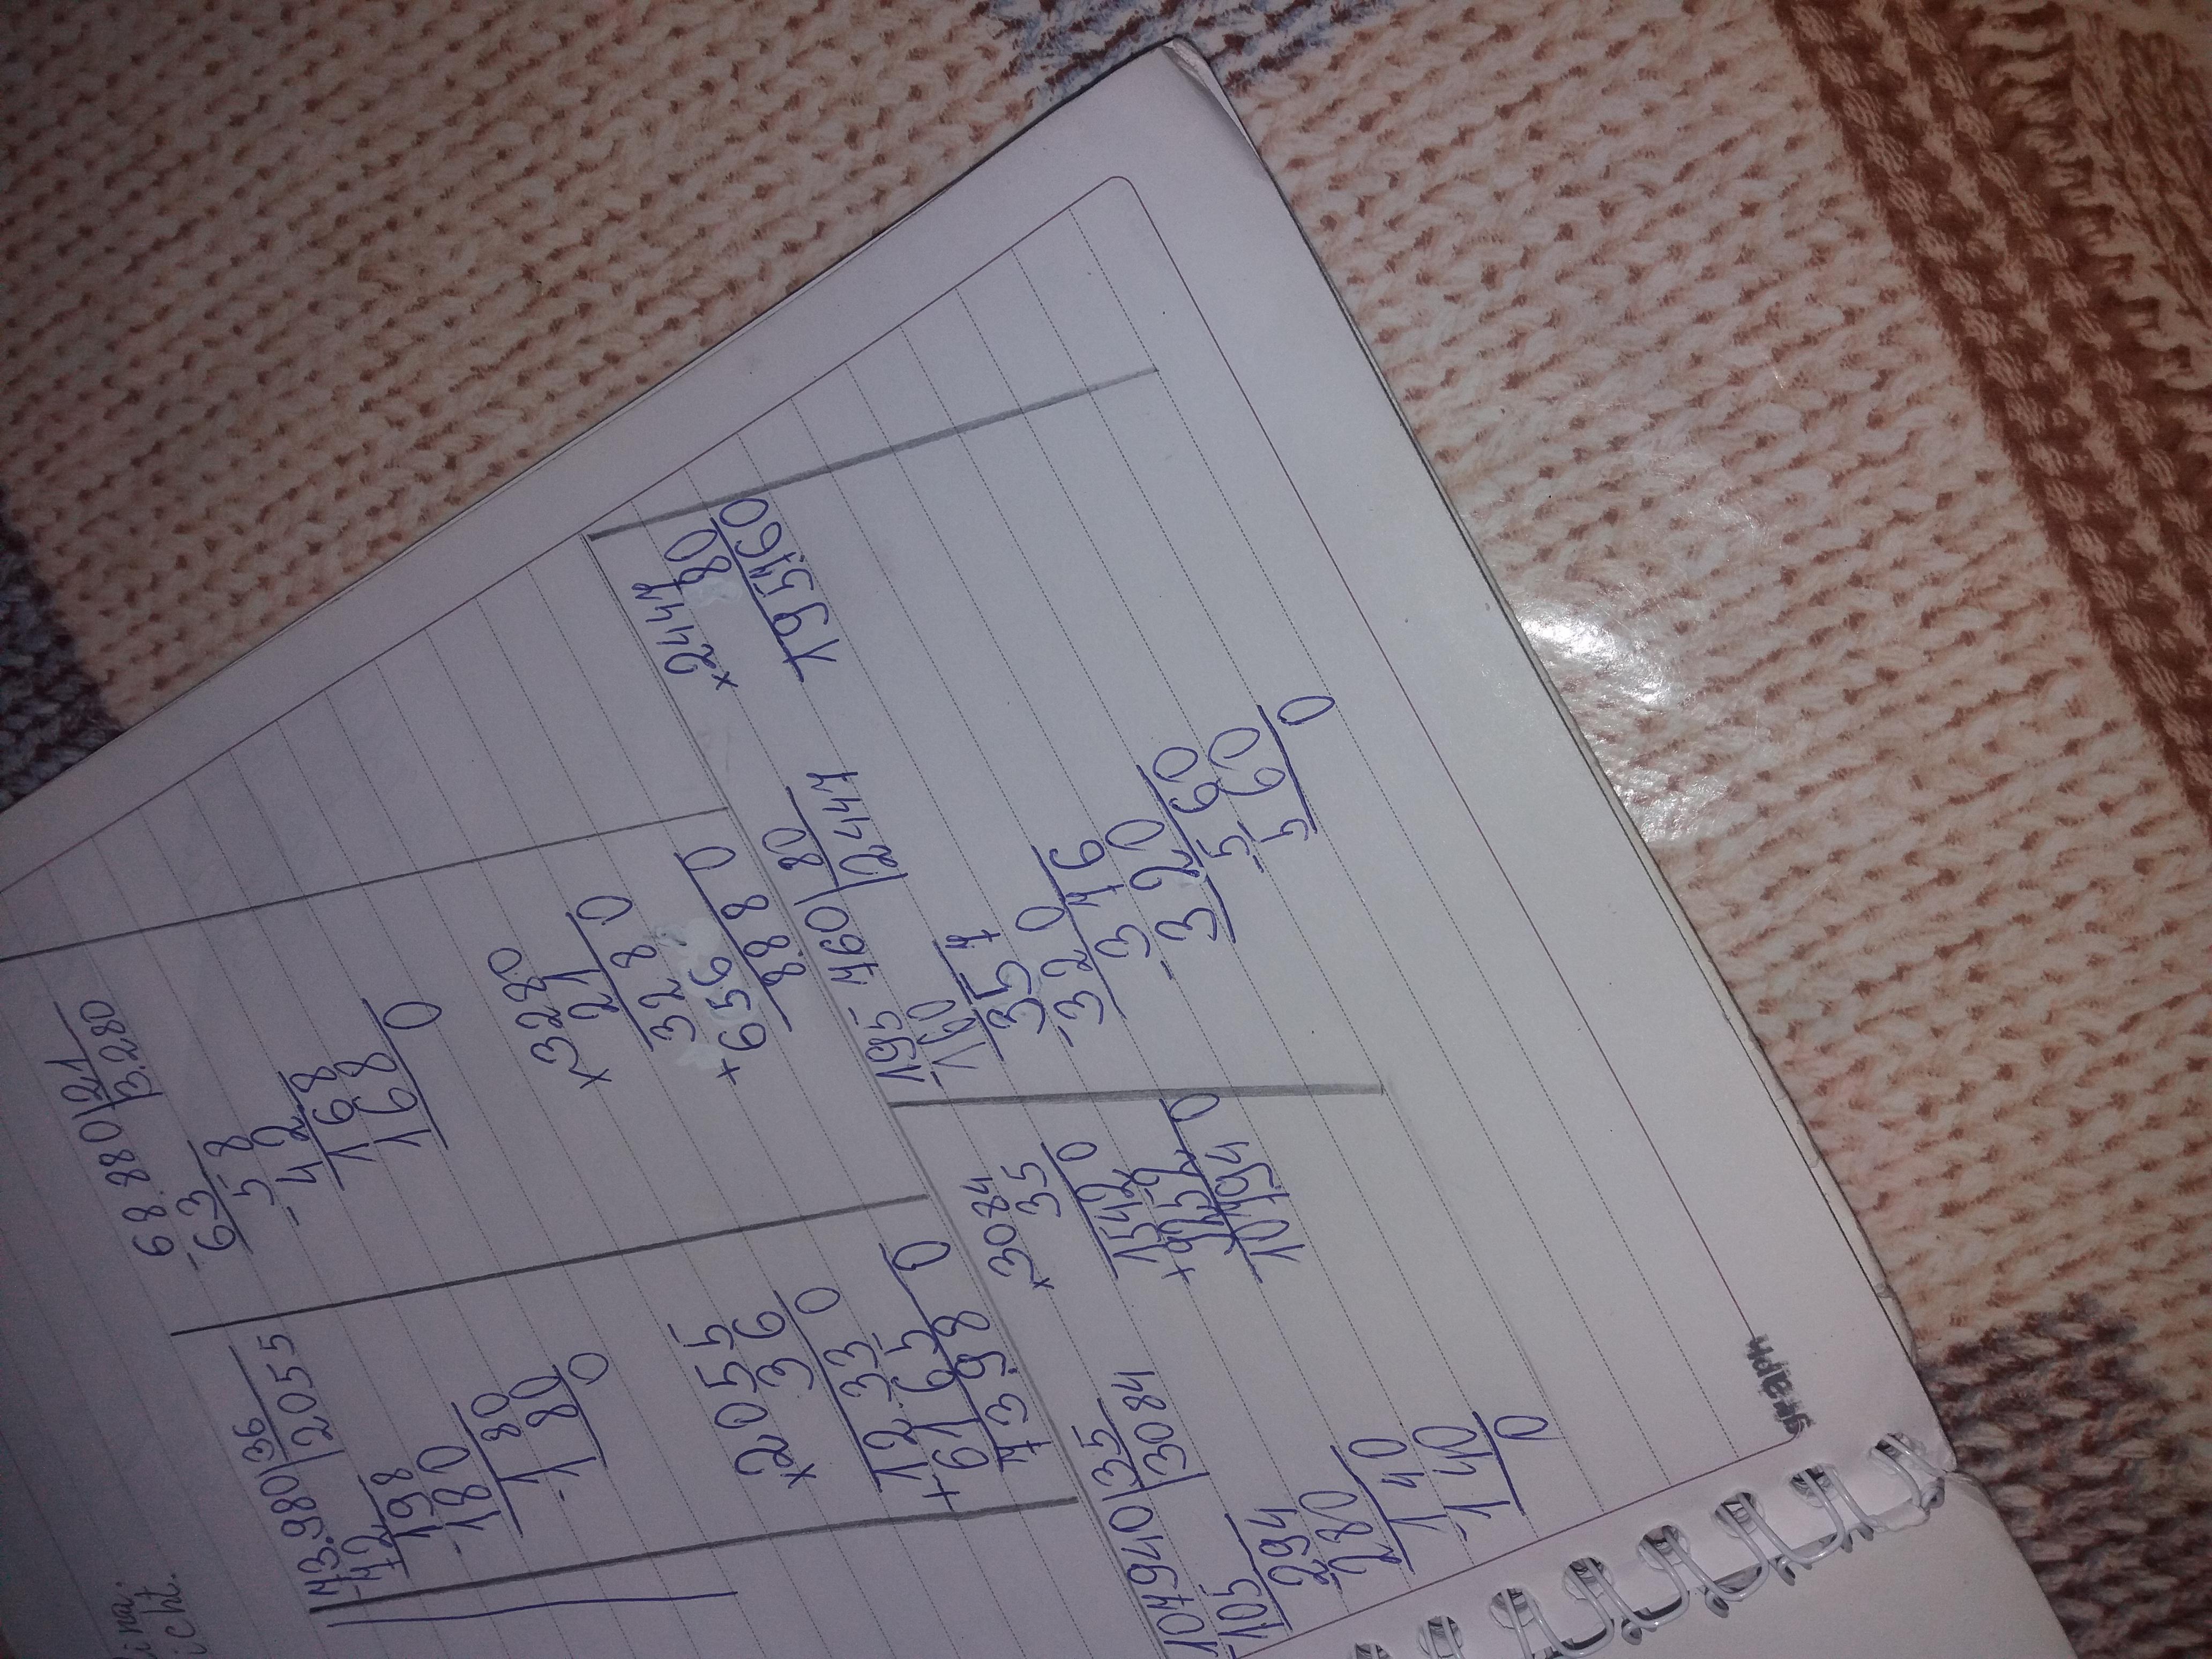 73.980|36
-72 |2055
198
-180
180
-180
0
x2055
36
12330
+6165
73.980
68.880|21
-63 |3.280
58
-42
168
168
0
x3280
21
3280
+656
8.880
107940|35
-105 |3084
294
280
140
-140
0
x3084
35
15420
+9252
107940
195.760|80
-160 |2447
357
-320
376
-320
560
560
0
x2447
80
195.760
graph